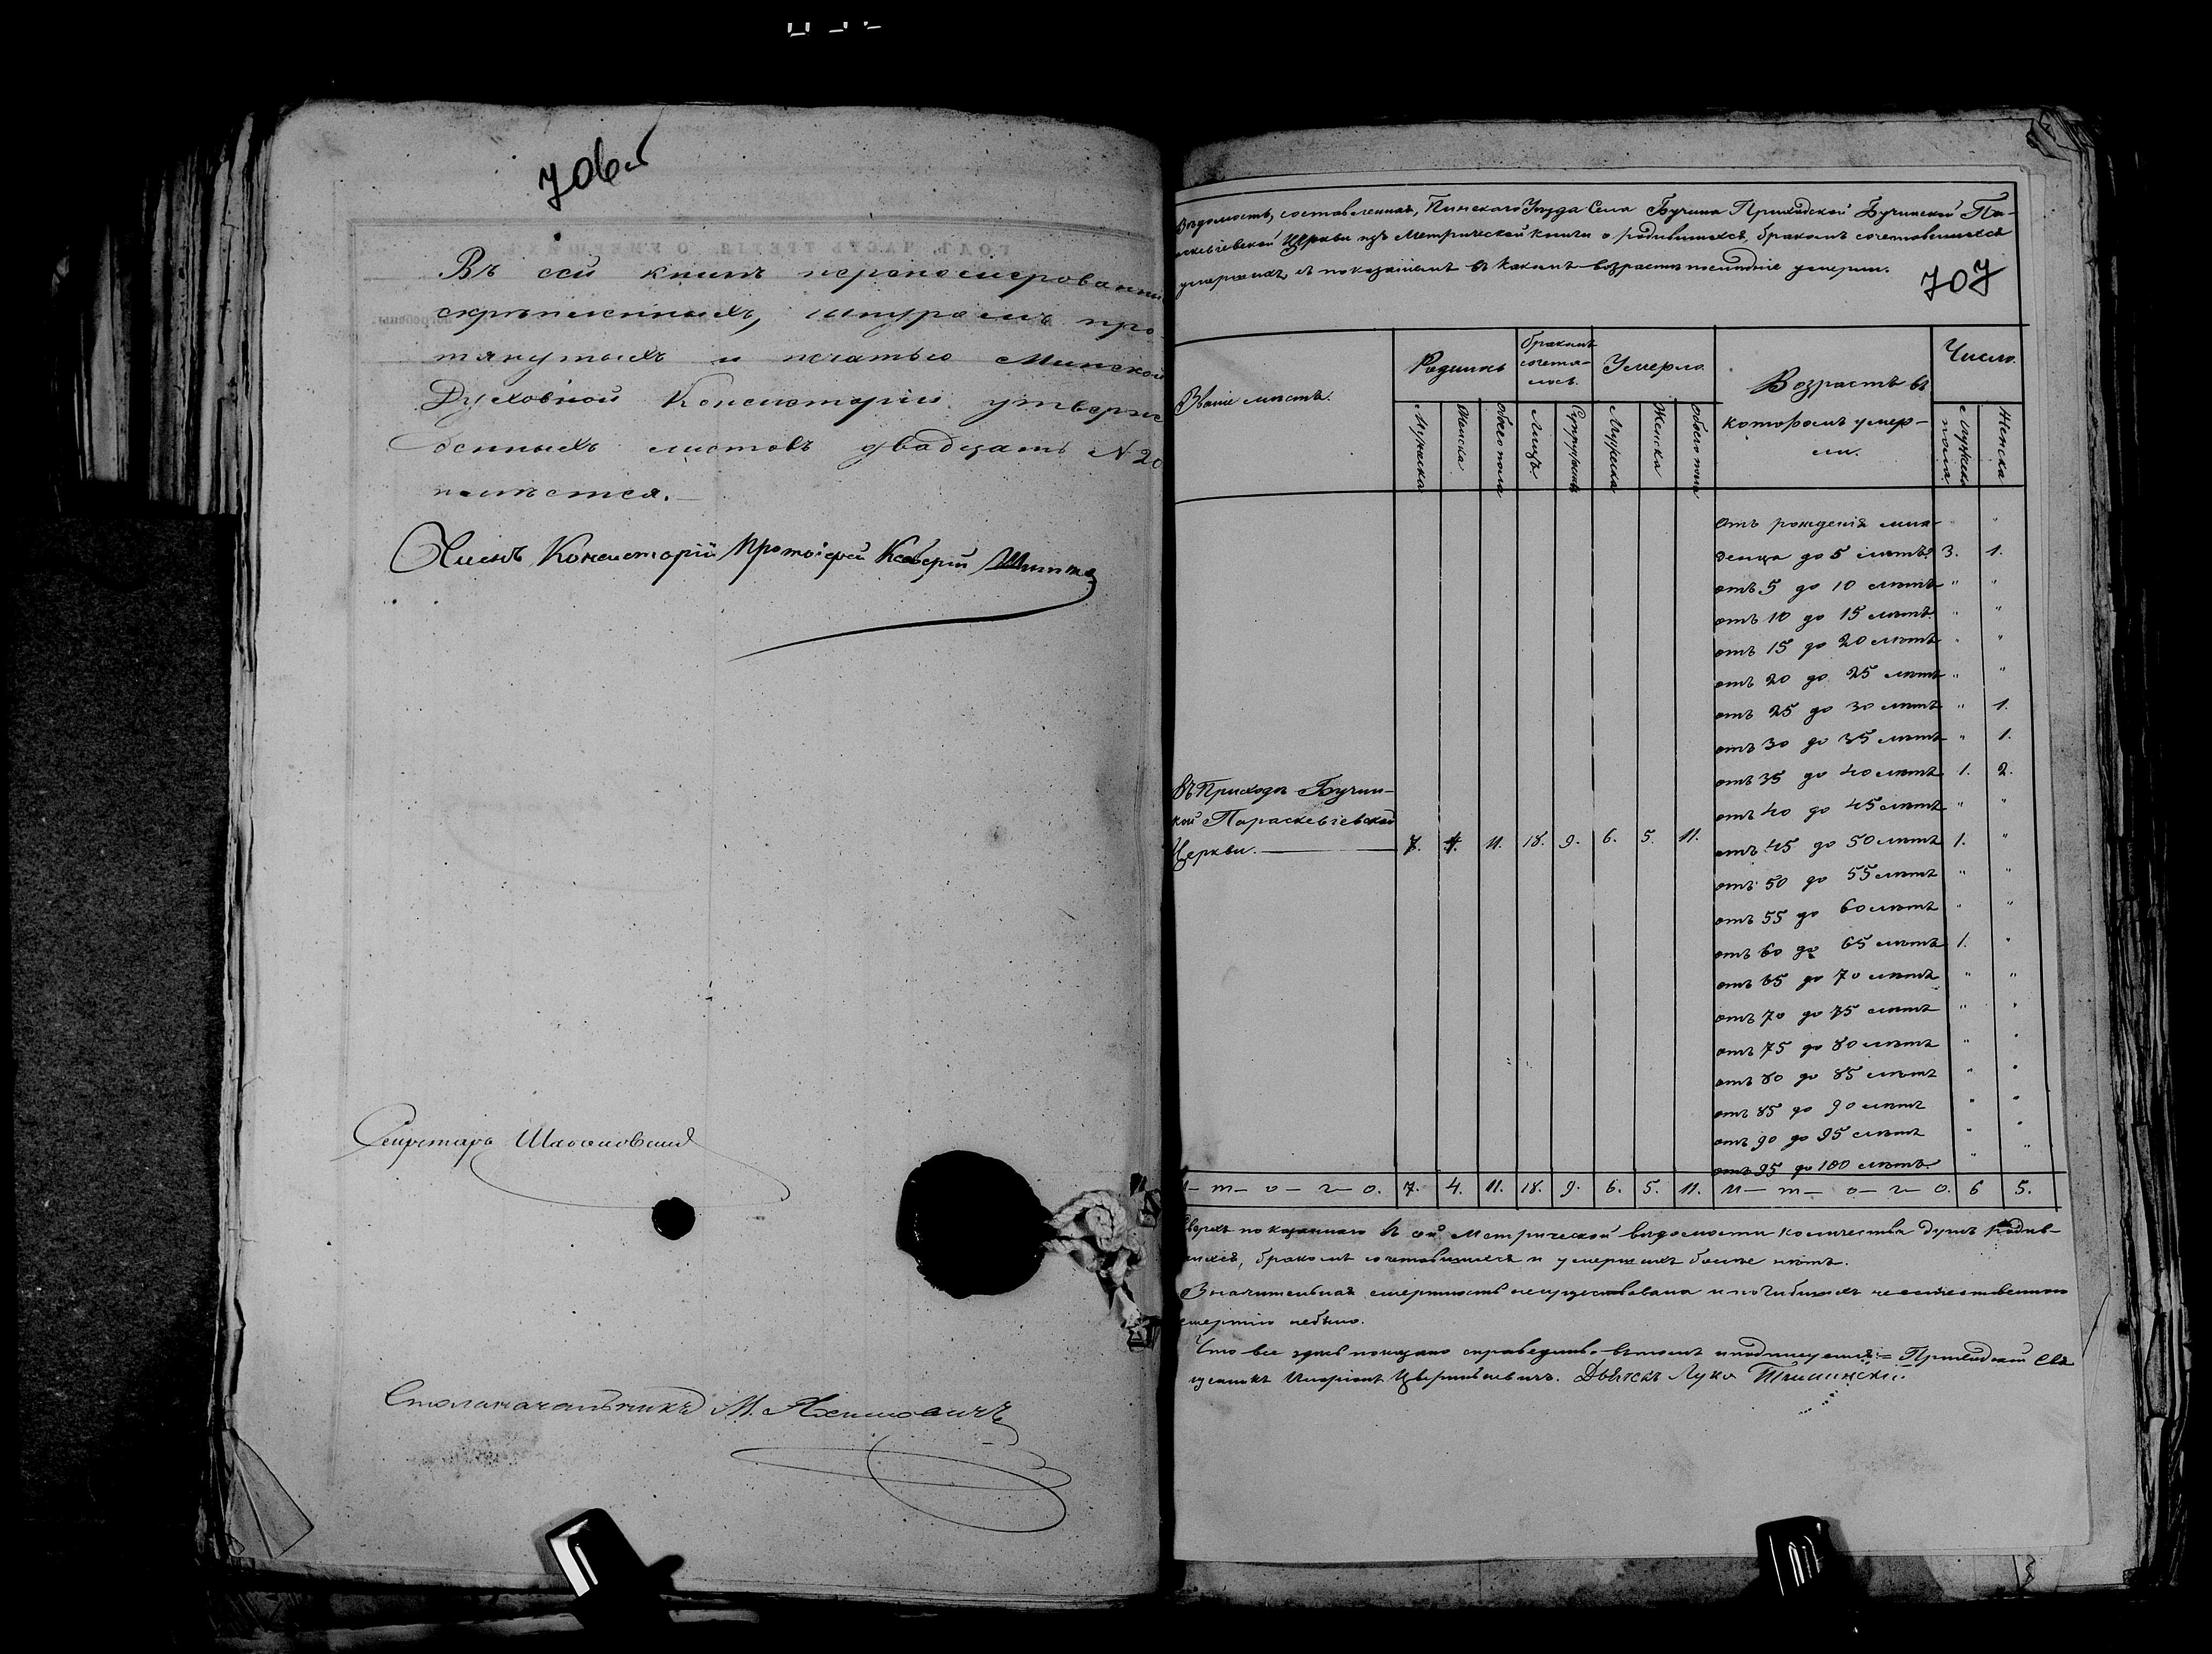 706об
Въ сей книгѣ перенумерованныхъ
скрѣпленныхъ, шнуромъ про
тянутыхъ и печатью Минской
Духовной Консисторіи утверж
денныхъ листовъ двадцать №20
Членъ Консисторіи Протоіерей Ксаверій
Секретарь
Столоначальникъ М.
Вѣдомость, составленная, Пинскаго Уѣзда Села Бучина Приходской Бучинской Па-
раскевіевской Церкви изъ Метрической книги о родившихся, бракомъ сочетавшихся
умершихъ, съ показаніемъ въ какомъ возрастѣ послѣдніе умерли.
707
Званіе мѣстъ.
Родилось
бракомъ
сочета-
лось.
Умерло.
Возрастъ въ
которомъ умер-
ли.
Число.
Мужеска
Женска
Обоего пола
Лицъ
Супружествъ
Мужеска
Женска
Обоего пола
Мужеска
пола
Женска
отъ рожденія мла- "
денца до 5 лѣтъ. 3. 1.
отъ 5 до 10 лѣтъ " "
отъ 10 до 15 лѣтъ. " "
отъ 15 до 20 лѣтъ " "
отъ 20 до 25 лѣтъ " "
отъ 25 до 30 лѣтъ " 1.
отъ 30 до 35 лѣтъ " 1.
отъ 35 до 40 лѣтъ 1. 2.
отъ 40 до 45 лѣтъ " "
отъ 45 до 50 лѣтъ 1. "
отъ 50 до 55 лѣтъ " "
отъ 55 до 60 лѣтъ " "
отъ 60 до 65 лѣтъ 1. "
отъ 65 до 70 лѣтъ " "
отъ 70 до 75 лѣтъ " "
отъ 75 до 80 лѣтъ " "
отъ 80 до 85 лѣтъ " "
отъ 85 до 90 лѣтъ " "
отъ 90 до 95 лѣтъ " "
отъ 95 до 100 лѣтъ. " "
Въ Приходѣ Бучин-
кой Параскевіевской
Церкви. 7. 4. 11. 18. 9. 6. 5. 11.
И — т — о — г — о. 7. 4. 11. 18. 9. 6. 5. 11. И — т — о — г — о. 6 5.
Сверхъ показаннаго въ сей Метрической вѣдомости количества душъ родив-
шихся, бракомъ сочетавшихся и умершихъ болѣе нѣтъ.
Значительная смертность не существовала и погибшихъ неестественною
смертію небыло.
Что все здѣсь показано справедливо въ томъ и подписуемся = Приходскій Свя
щенникъ Дьячекъ Лука